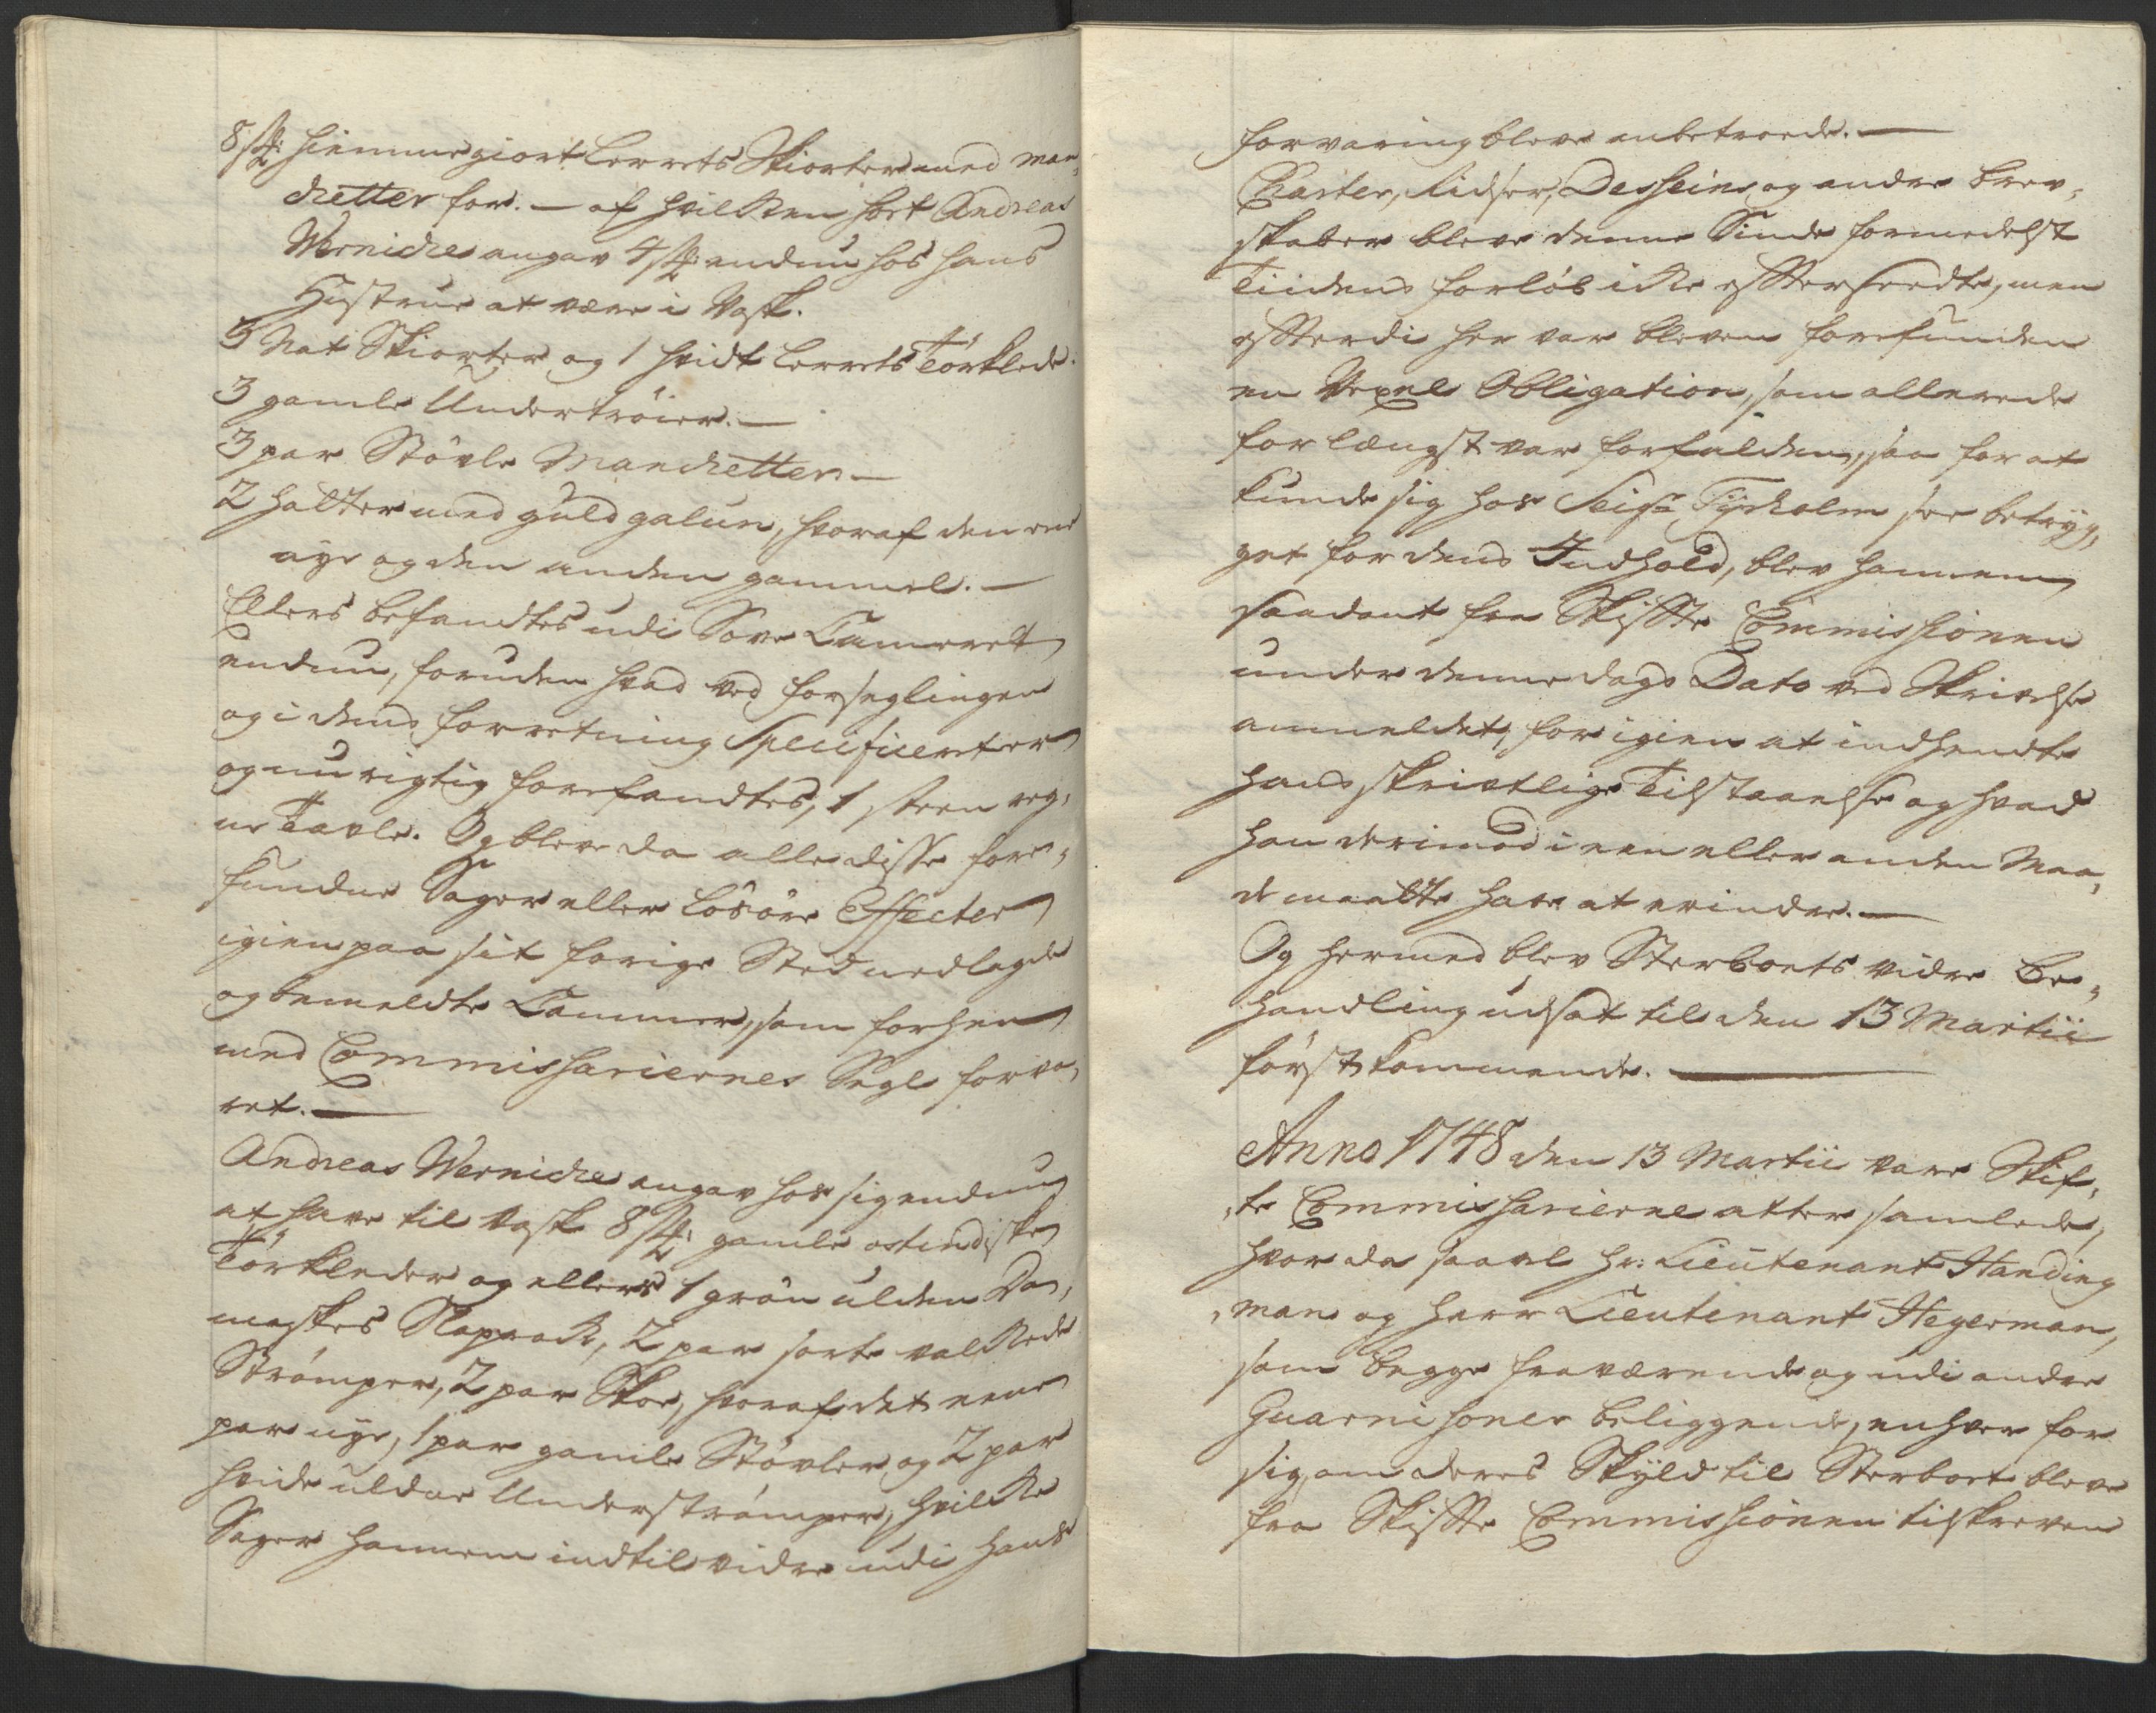 8 st: hiemmegiort Lerrets Skiorter med man„
chetter for. — af hvilken sort Andreas
Wernickes angav 4 st: endnu hos hans
Hustrue at være i Vask.
5 Nat Skiorter og 1 hvidt Lerrets Törklede.
3 gamle Undertröier. —
3 par Stövle Manchetter —
2 Hatter med guld galun, hvoraf den ene
nye og den anden gammel. —
Ellers befandtes udi Sove Cammeret
endnu, foruden hvad ved forseglingen
og i dens forretning Specificeret er
og nu rigtig forefandtes, 1 steen reg„
ne Tavle. Og bleve da alle disse fore„
fundne Sager eller Lösöre Effecter
igien paa sit forige Sted nedlagde
og bemeldte Cammer, som forhen
med Commissariernes Segl forva„
ret. —
Andreas Wernickes angav hos sig endnu
at have til Vask 8 st: gamle ostindiske
Törkleder og ellers 1 grön ulden Da„
maskes Slaprock, 2 par sorte valckede
Strömper, 2 par Skoe, hvoraf det eene
par nye, 1 par gamle Stövler og 2 par
hvide uldne Underströmper, hvilcke
Sager hannem indtil vidre udi hans
forvaring bleve anbetroede. —
Charter, Ridser, Desseins og andre brev„
skaber bleve denne Sinde formedelst
Tiidens forlöb icke efterseedte, men
efterdi her var bleven forefunden
en Vexel Obligation, som allerede
for længst var forfalden, saa for at
kunde sig hos Seigr Tyrholm see betryg„
get for dens Indhold, blev hannem
saadant fra Skifte Commissionen
under denne dags Dato ved Skrivelse
anmeldet, for igien at indhendte
hans skrivtlige Tilstaaelse og hvad
han derimod i een eller anden Maa„
de maatte have at erindre. —
Og hermed blev Sterboets vidre Be„
handling udsat til den 13 Martii
förstkommende. —
Anno 1748 den 13 Martii vare Skif„
„te Commissarierne atter samlede,
hvor da saavel Hr: Lieutenant Handing
„man og Herr Lieutenant Hegerman,
som begge fraværende og udi andre
Guarnisoner beliggende, enhver for
sig, om deres Skyld til Sterboet bleve
fra Skifte Commissionen tilskreven